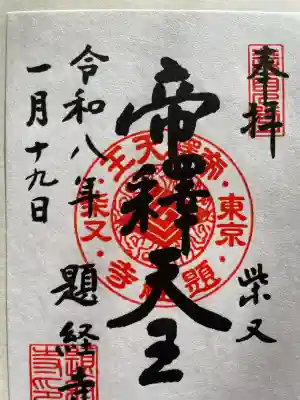 奉拝
柴又
帝釋天王
令和八年
一月十九日
題経寺
帝釋天王
東京
題経寺
柴又